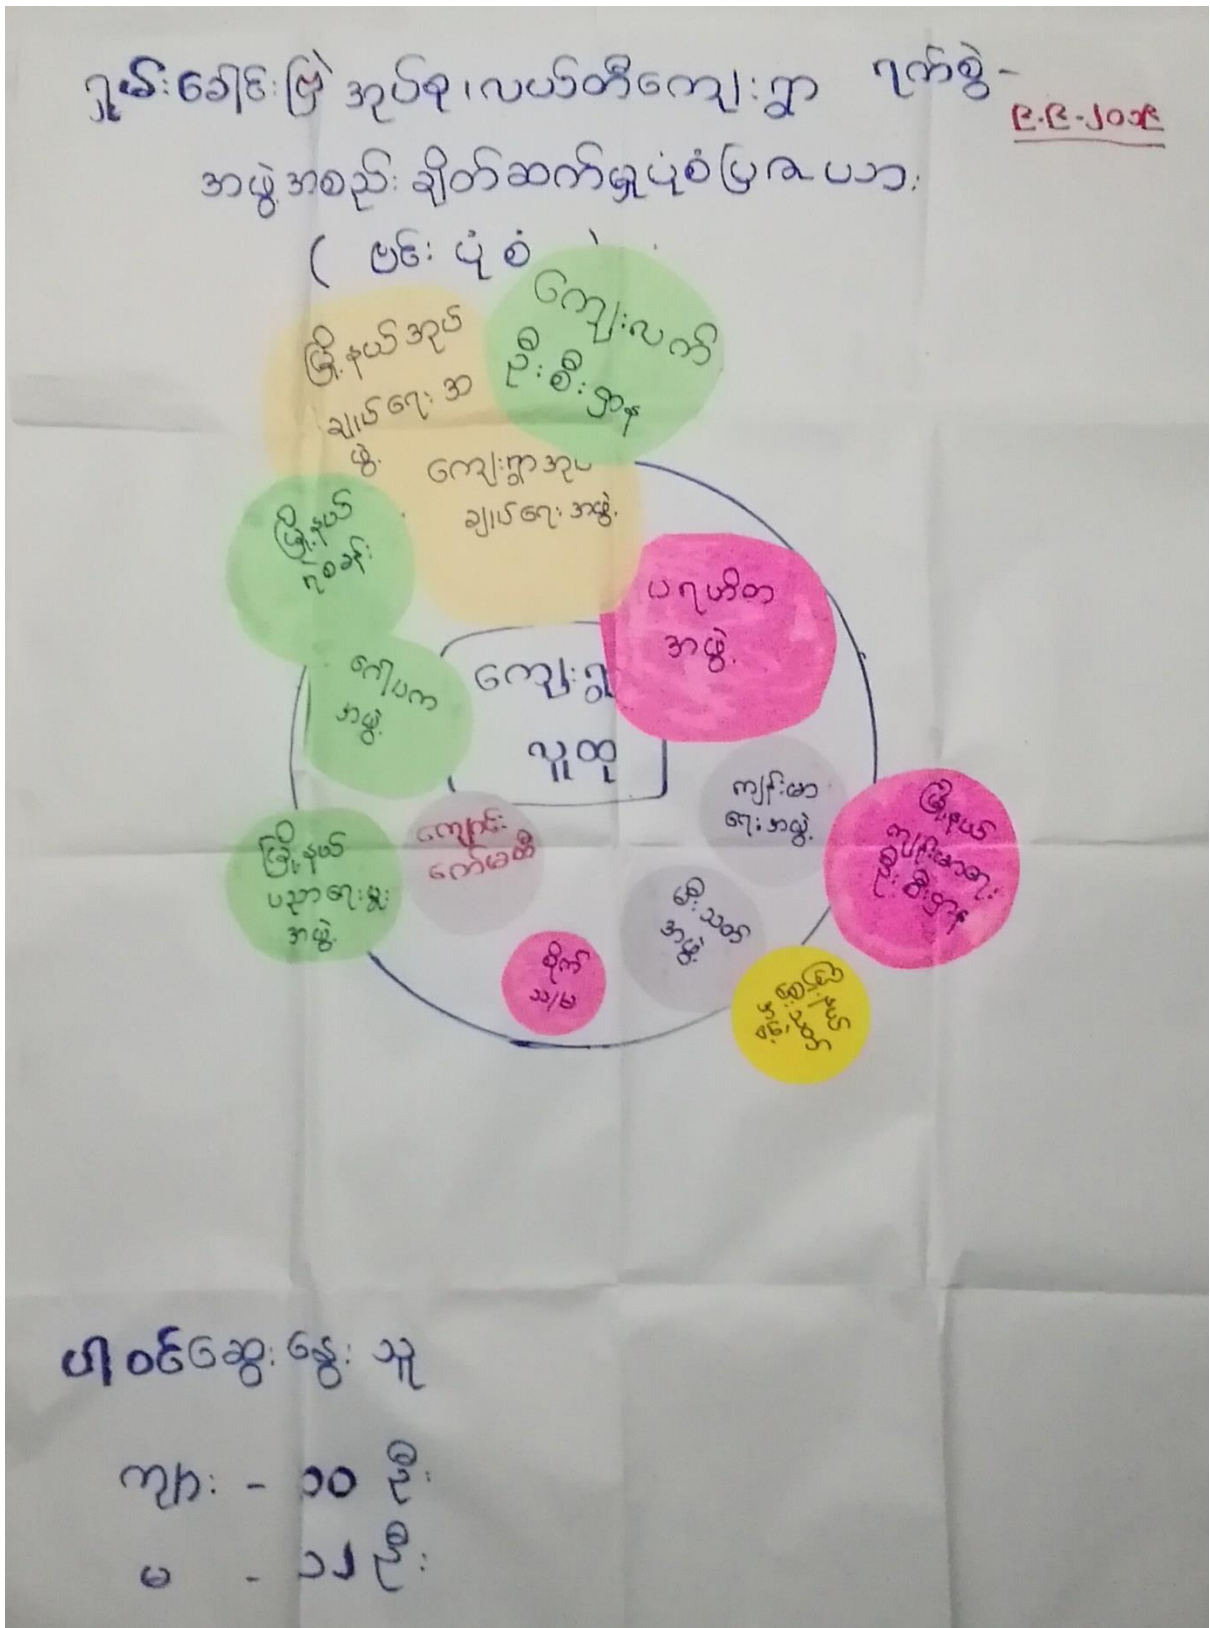 ရှမ်းခေါင်းဗြဲအုပ်စု၊ လယ်တီကျေးရွာ ရက်စွဲ -
၉-၉-၂၀၁၉
အဖွဲ့အစည်းချိတ်ဆက်မှုပုံစံပြဇယား
( ဗင်းပုံစံ )
ကျေးလက်
ဦးစီးဌာန
မြို့နယ်အုပ်
ချုပ်ရေးအ
ဖွဲ့
ကျေးရွာအုပ်
ချုပ်ရေးအဖွဲ့
မြို့နယ်
ရဲစခန်း
ပရဟိတ
အဖွဲ့
ဂေါပက
အဖွဲ့
ကျေးရွာ
လူထု
ကျန်းမာ
ရေးအဖွဲ့
မြို့နယ်
ကျန်းမာရေး
ဦးစီးဌာန
ကျောင်း
ကော်မတီ
မြို့နယ်
ပညာရေးမှူး
အဖွဲ့
မီးသတ်
အဖွဲ့
စိုက်
သ/မ
မြို့နယ်
မီးသတ်
အဖွဲ့
ပါဝင်ဆွေးနွေးသူ
ကျား - ၁၀ ဦး
မ - ၁၂ ဦး